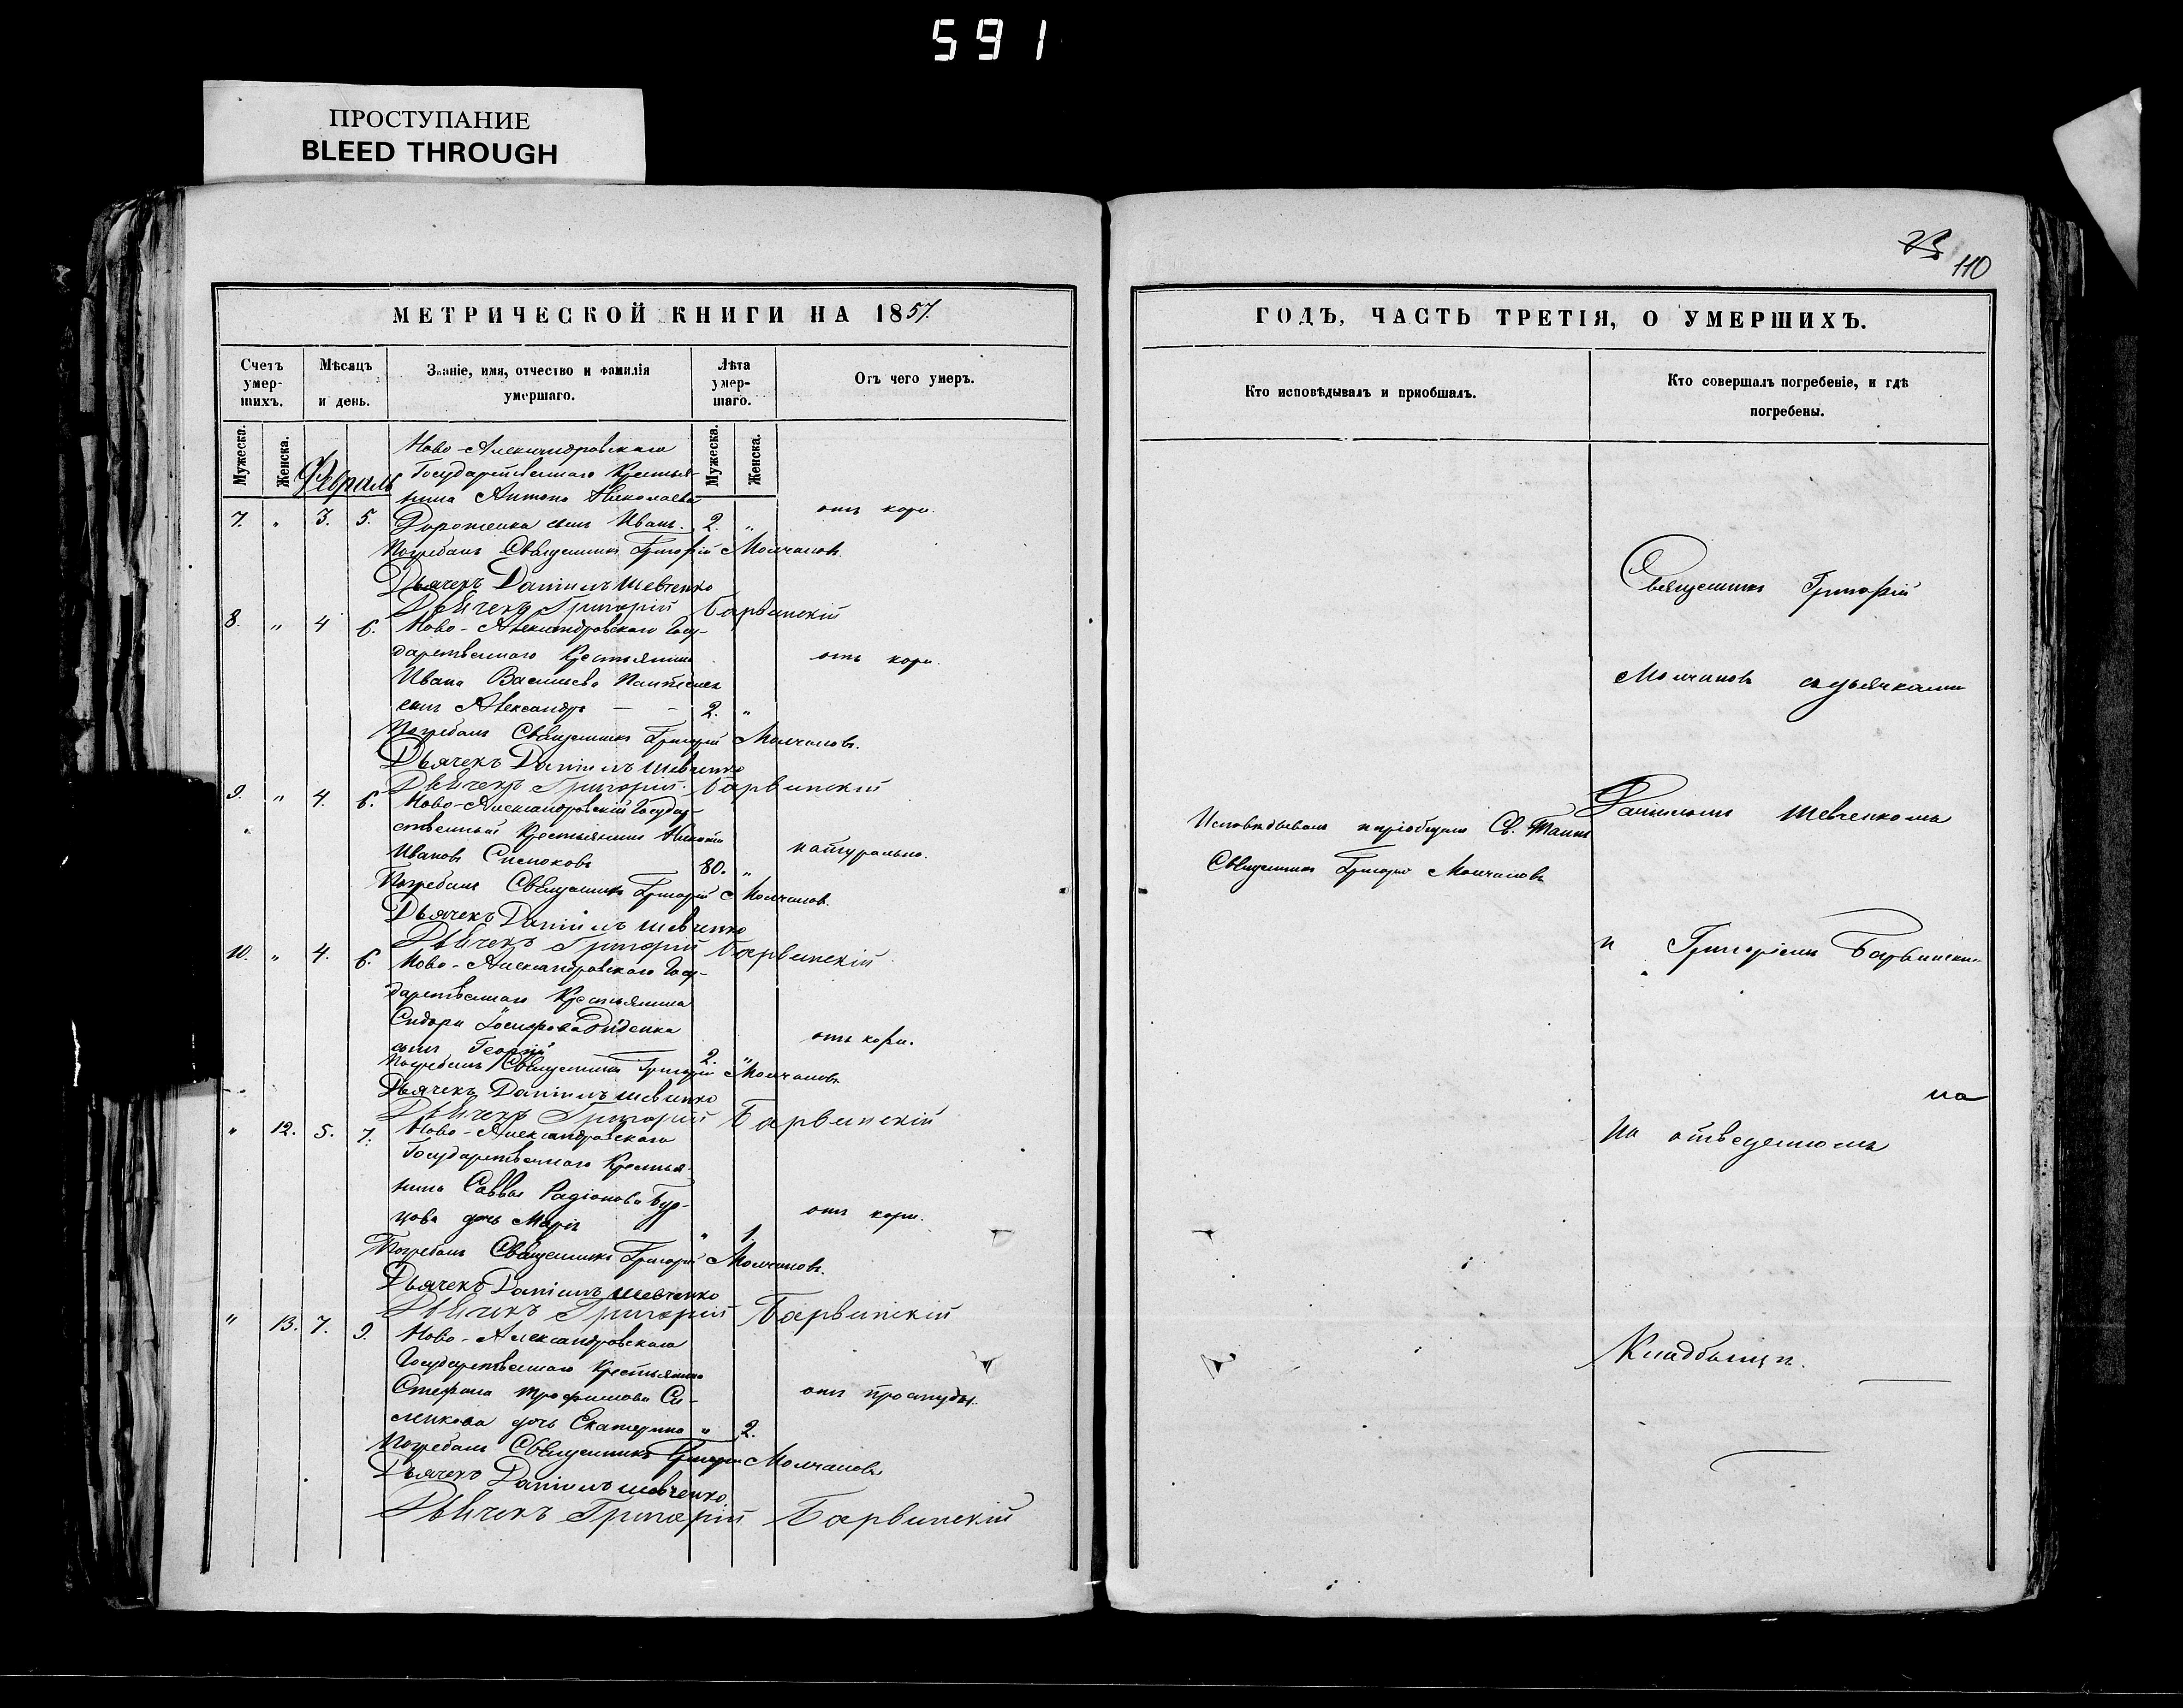 591
ПРОСТУПАНИЕ
BLEED THROUGH
110
МЕТРИЧЕСКОЙ КНИГИ НА 1857.
Счетъ умер-шихъ.
Мѣсяцъ и день.
Званіе, имя, отчество и фамилія умершаго.
Лѣта умер-шаго.
Отъ чего умеръ.
Мужеска.
Женска.
Мужеска.
Женска.
Февраль
Ново-Александровскаго
Государственнаго Крестья-
нина Антона Николаева
7. " 3. 5. Дорошенка сынъ Иванъ. 2. " отъ кори.
Погребалъ Священникъ Григорій Молчановъ.
Дьячекъ Даніилъ Шевченко
Дьячекъ Григорій Барвинскій
8. " 4 6. Ново-Александровскаго Госу-
дарственнаго Крестьянина отъ кори.
Ивана Васильева
сынъ Александръ — — 2. "
Погребалъ Священникъ Григорій Молчановъ.
Дьячекъ Даніилъ Шевченко
Дьячекъ Григорій Барвинскій
9. " 4. 6. Ново-Александровскій Государ-
ственный Крестьянинъ
Ивановъ 80. " натурально.
Погребалъ Священникъ Григорій Молчановъ.
Дьячекъ Даніилъ Шевченко
Дьячекъ Григорій Барвинскій
10. " 4. 6. Ново-Александровскаго Госу-
дарственнаго Крестьянина
Сидора Іосифова Диденка отъ кори.
сынъ Георгій 2. "
Погребалъ Священникъ Григорій Молчановъ
Дьячекъ Даніилъ Шевченко
Дьячекъ Григорій Барвинскій
" 12. 5. 7. Ново-Александровскаго
Государственнаго Крестья-
нина Саввы Радіонова Бур- отъ кори.
цова дочь Марія " 1.
Погребалъ Священникъ Григорій Молчановъ.
Дьячекъ Даніилъ Шевченко
Дьячекъ Григорій Барвинскій
" 13. 7. 9. Ново-Александровскаго
Государственнаго Крестьянина
Стефана Трофимова Си- отъ простуды.
ленкова дочь Екатерина " 2.
Погребалъ Священникъ Григорій Молчановъ
Дьячекъ Даніилъ Шевченко.
Дьячекъ Григорій Барвинскій
ГОДЪ, ЧАСТЬ ТРЕТІЯ, О УМЕРШИХЪ.
Кто исповѣдывалъ и приобщалъ.
Кто совершалъ погребеніе, и гдѣ погребены.
Исповѣдывалъ и пріобщалъ Св. Таинъ
Священникъ Григорій Молчановъ
Священникъ Григорій
Молчановъ съ дьячками
Даніиломъ Шевченкомъ
и Григоріемъ Барвинскимъ
на
на отведенномъ
Кладбищѣ.